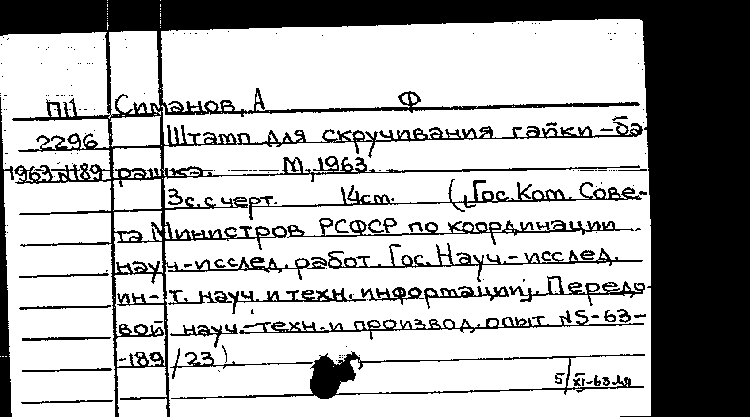 ПII Симанов, А Ф
2296 Штамп для скручивания гайки-ба-
1963 N189 рашка. М., 1963.
3с. с черт. 14cm. (Гос. Ком. Сове-
та Министров РСФСР по координации
науч.-исслед. работ. Гос. Науч.-исслед.
ин-т. науч. и техн. информации. Передо-
вой науч.-техн. и производ. опыт N5-63-
-189/23).
5/XI-63